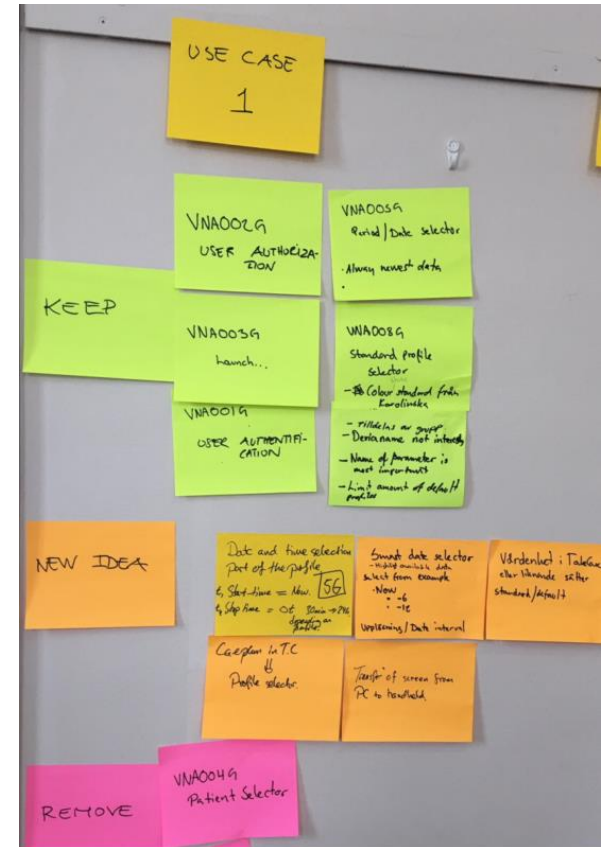 USE CASE
1
KEEP
VNA002G
USER AUTHORIZA-
TION
VNA005G
Period/Date selector
· Alway newest data
·
VNA003G
Launch...
VNA008G
Standard profile
selector
- Colour standard från
Karolinska
VNA001G
USER AUTHENTIFI-
CATION
- Tilldelas av grupp
- name not
- Name of parameter is
most important
- Limit amount of default
profiles
NEW IDEA
Date and time selection
Part of the profile
Start-time = Now. 5G
Stop time = 30min → 24h
depending on
profile
Smart date selector
available data
select from example
· Now
· -6
· -12
/Date interval
Vårdenhet i
eller liknande sätter
standard/default
Careplan in T.C
⇓
Profile selector.
Transfer of screen from
PC to handheld.
REMOVE
VNA004G
Patient Selector